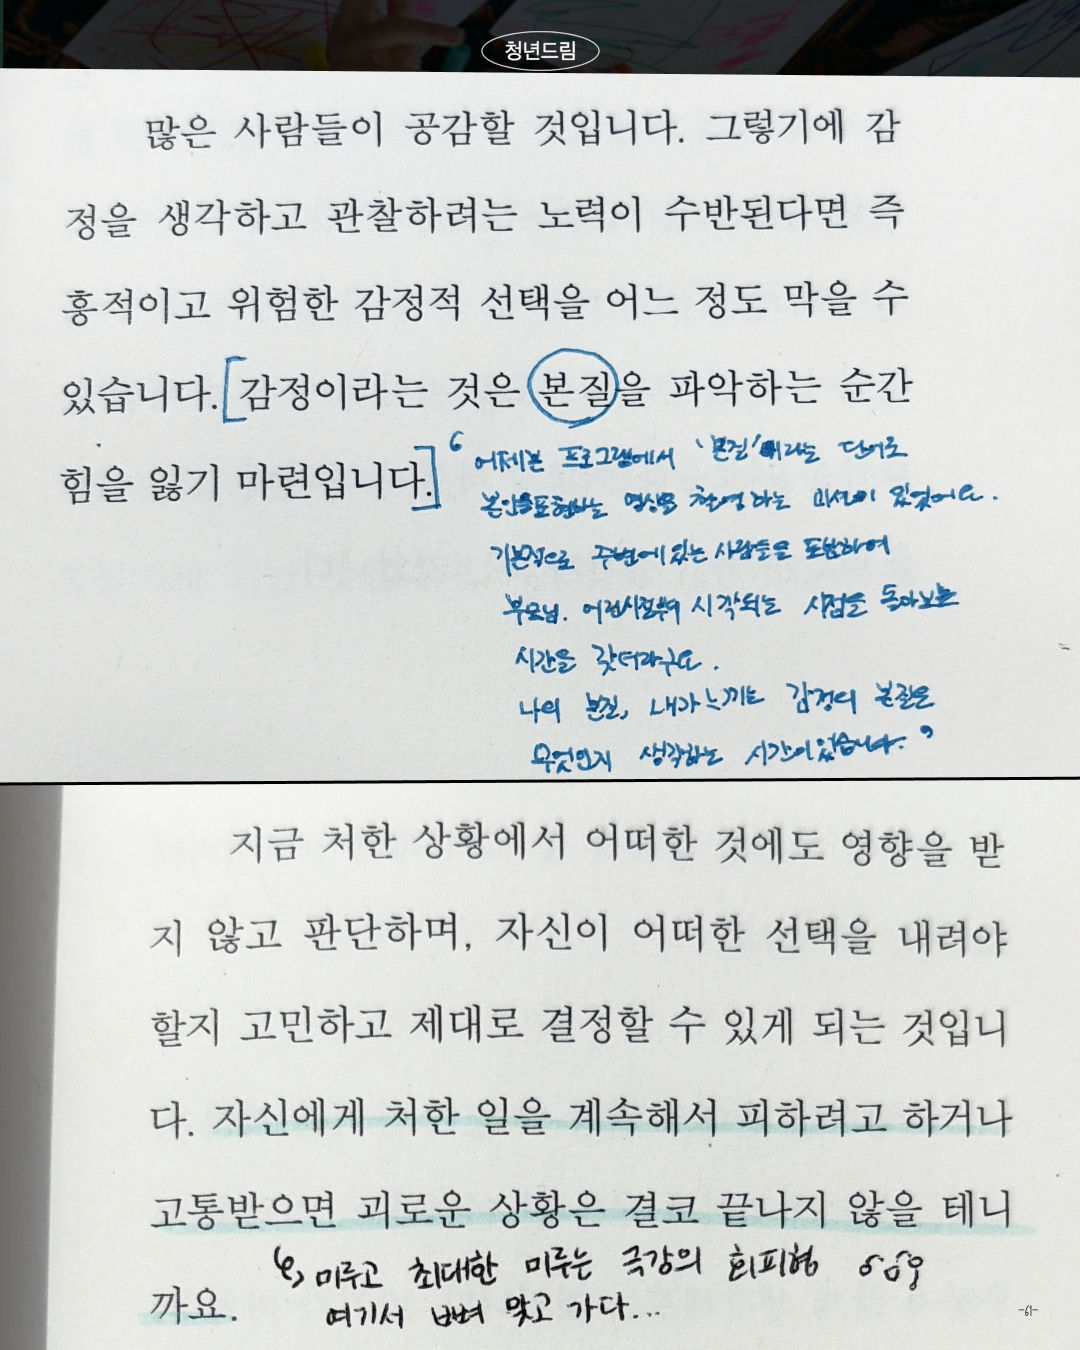 청년드림
많은 사람들이 공감할 것입니다. 그렇기에 감
정을 생각하고 관찰하려는 노력이 수반된다면 즉
흥적이고 위험한 감정적 선택을 어느 정도 막을 수
있습니다. [감정이라는 것은 본질을 파악하는 순간
힘을 잃기 마련입니다.]
‘어제본 프로그램에서 '본질'이라는 단어로
본인을표현하는 영상을 촬영하는 미션이 있었어요.
기본적으로 주변에 있는 사람들을 포함하여
부모님. 어린시절부터 시작되는 시점을 돌아보는
시간을 갖더라구요.
나의 본질, 내가 느끼는 감정의 본질은
무엇인지 생각하는 시간이었습니다.’
지금 처한 상황에서 어떠한 것에도 영향을 받
지 않고 판단하며, 자신이 어떠한 선택을 내려야
할지 고민하고 제대로 결정할 수 있게 되는 것입니
다. 자신에게 처한 일을 계속해서 피하려고 하거나
고통받으면 괴로운 상황은 결코 끝나지 않을 테니
까요.
미루고 최대한 미루는 극강의 회피형
여기서 뼈 맞고 가다...
-61-